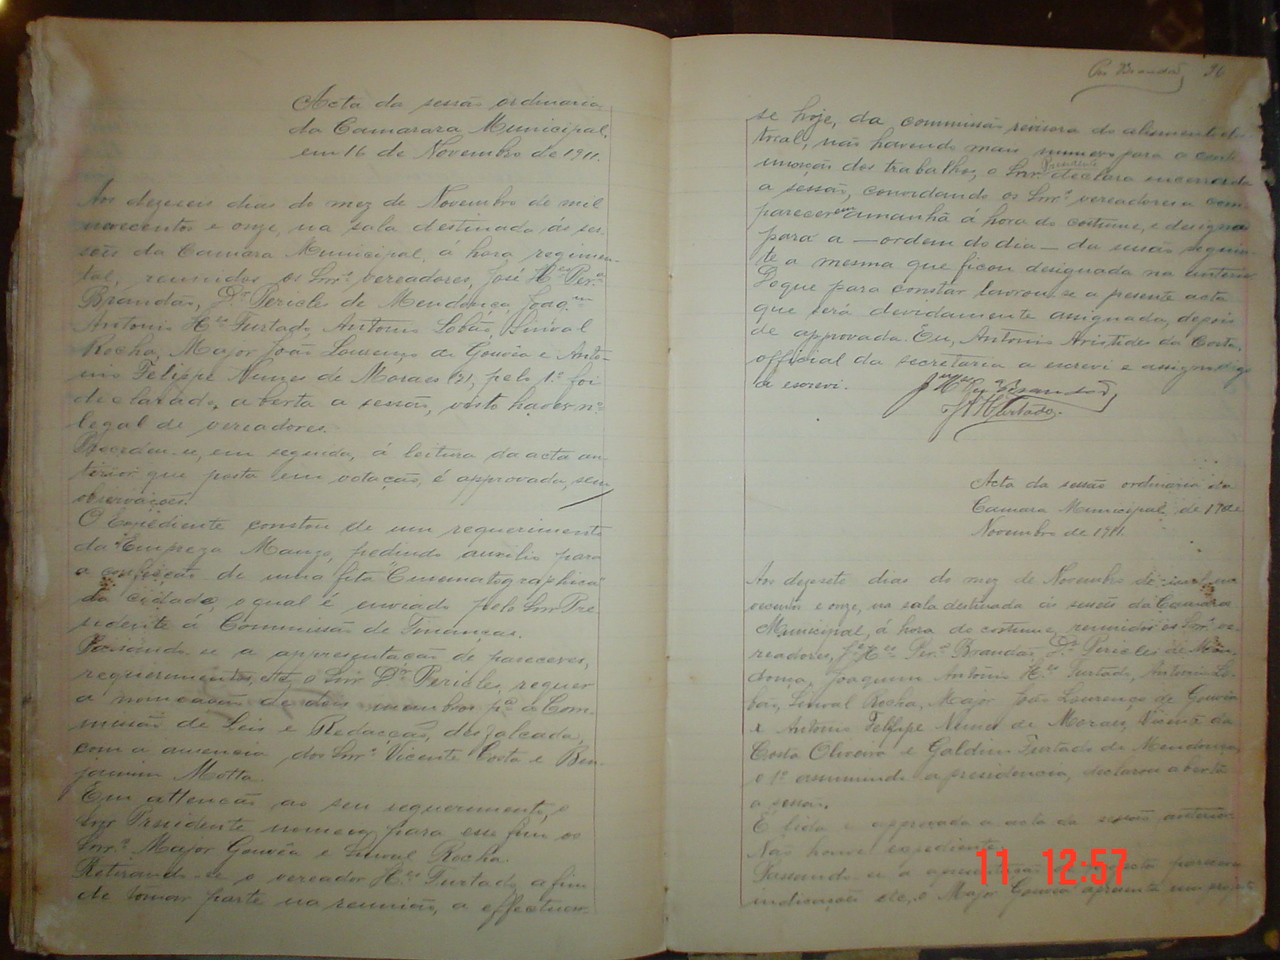 Acta da sessão ordinaria
da Camarara Municipal,
em 16 de Novembro de 1911.
Aos deseseis dias do mez de Novembro de mil
novecentos e onze, na sala destinada ás ses-
sões da Camara Municipal, á hora regimen-
tal, reunidos os Snrs. vereadores, José Hes Pera
Brandão, Dr. Pericles de Mendonça, Joaqm
Antonio Hes Furtado, Antonio Lobão, Sinval
Rocha, Major João Lourenço de Gouvêa e Anto-
nio Felippe Nunes de Moraes, pelo 1º foi
declarado, aberta a sessão, visto haver no
legal de vereadores.
Procedeu-se, em seguida, á leitura da acta an-
terior que posta em votação, é approvada, sem
observações.
O Expediente constou de um requerimento
da Empreza Mange, pedindo auxilio para
a confecção de uma fita "Cinematographica"
da cidade, o qual é enviado pelo Snr Pre
sedente á Commissão de Finanças.
Passando-se a apresentação de pareceres,
requerimentos, etc, o Snr Dr. Pericles, requer
a nomeação de dois membros pa a Com-
missão de Leis e Redacção, desfalcada,
com a ausencia dos Snrs. Vicente Costa e Ben-
jamim Motta.
Em attenção ao seu requerimento, o
Snr Presidente nomeou para esse fim os
Snrs. Major Gouvêa e Sinval Rocha.
Retirando-se o vereador Hes Furtado, a fim
de tomar parte na reunião, a effectuar-
Pera Brandão 36
se hoje, da commissão revisora do alistamento elei-
toral, não havendo mais numero para a conti-
nuação dos trabalhos, o Snr. Presidente declara encerrada
a sessão, convidando os Snrs. vereadores a com-
parecerem amanhã á hora do costume, e designa
para a — ordem do dia — da sessão seguin-
te a mesma que ficou designada na anterior.
Do que para constar lavrou-se a presente acta
que será devidamente assignada, depois
de approvada. Eu, Antonio Aristides da Costa,
official da secretaria a escrevi e assigno digo
a escrevi.
J. Hes Pera Brandão
J A H Furtado
Acta da sessão ordinaria da
Camara Municipal, de 17 de
Novembro de 1911.
Aos desesete dias do mez de Novembro de mil no
vecentos e onze, na sala destinada ás sessões da Camara
Municipal, á hora do costume, reunidos os Snrs. ve-
readores, Je Hes Pera Brandão, Dr. Pericles de Men-
donça, Joaquim Antonio Hes Furtado, Antonio Lo-
bão, Sinval Rocha, Major João Lourenço de Gouvêa
e Antonio Felippe Nunes de Moraes, Vicente da
Costa Oliveira e Galdino Furtado de Mendonça,
o 1º assumindo a presidencia, declarou aberta
a sessão.
É lida e approvada a acta da sessão anterior.
Não houve expediente.
Passando-se a apresentação de pareceres
indicações etc, o Major Gouvêa apresenta um
11 12:57